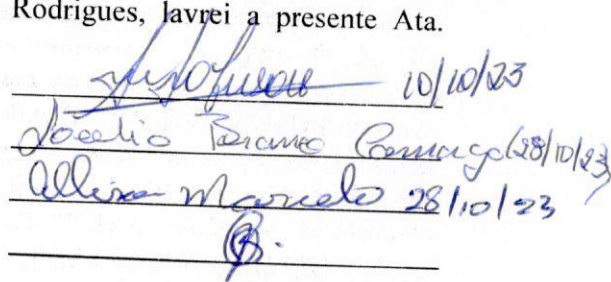 Rodrigues, lavrei a presente Ata.
10/10/23
Jocelio Camargo (28/10/23)
Marcelo 28/10/23